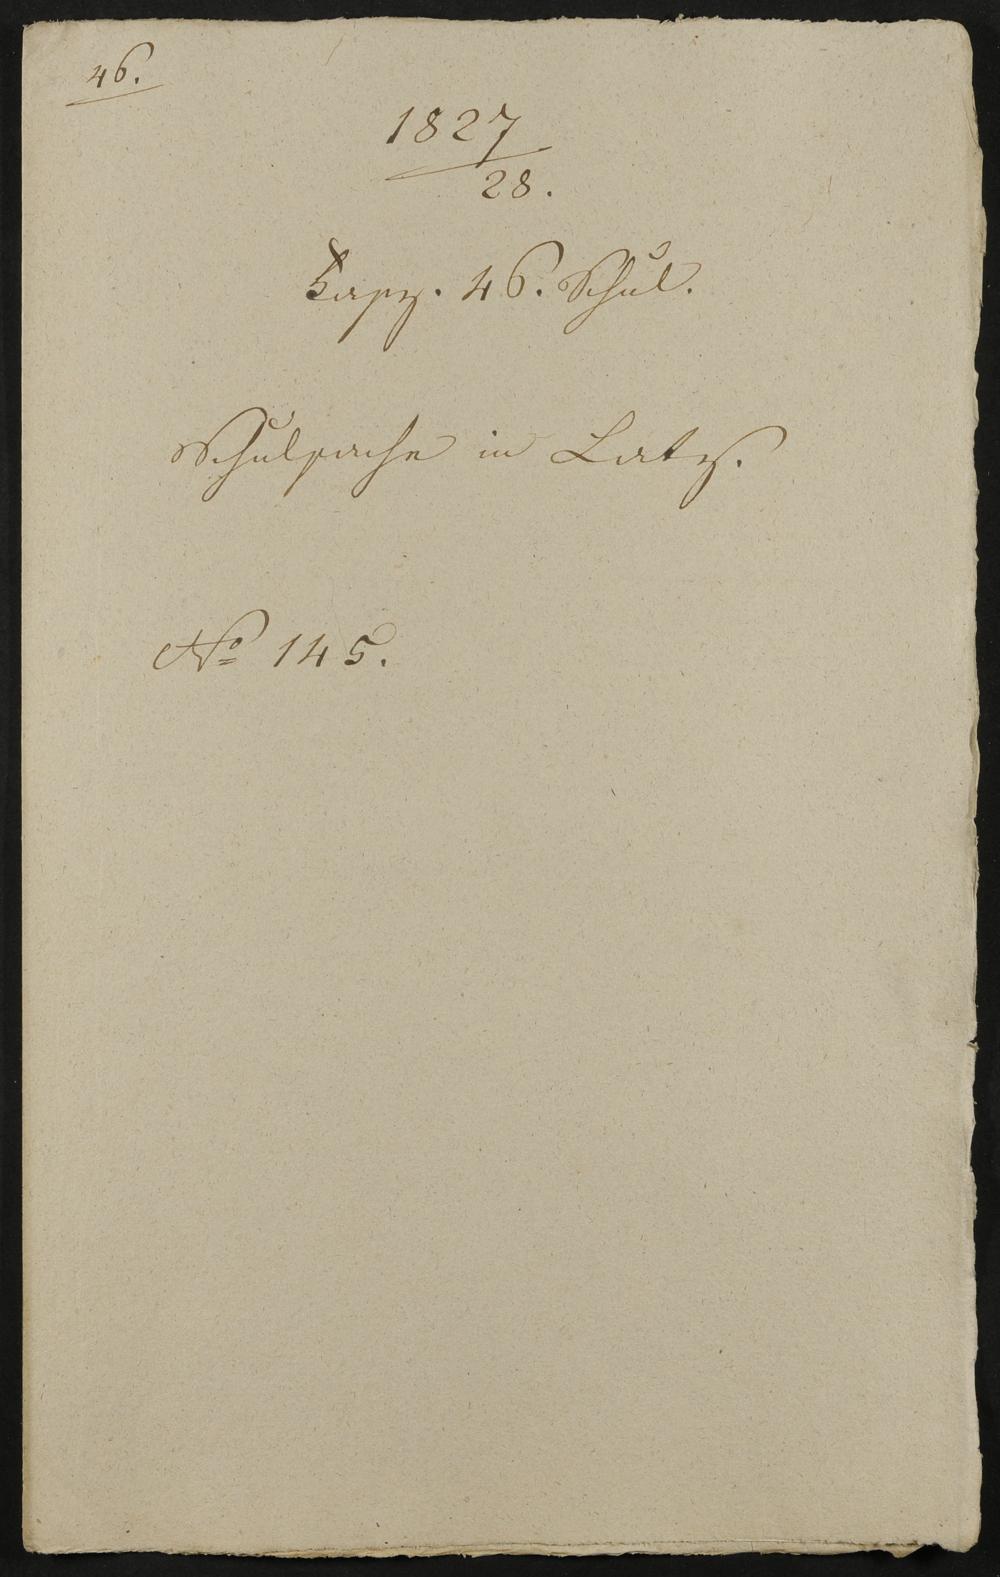 46.
1827
28.
46. Schul.
Schulsache in Latz.
No 145.